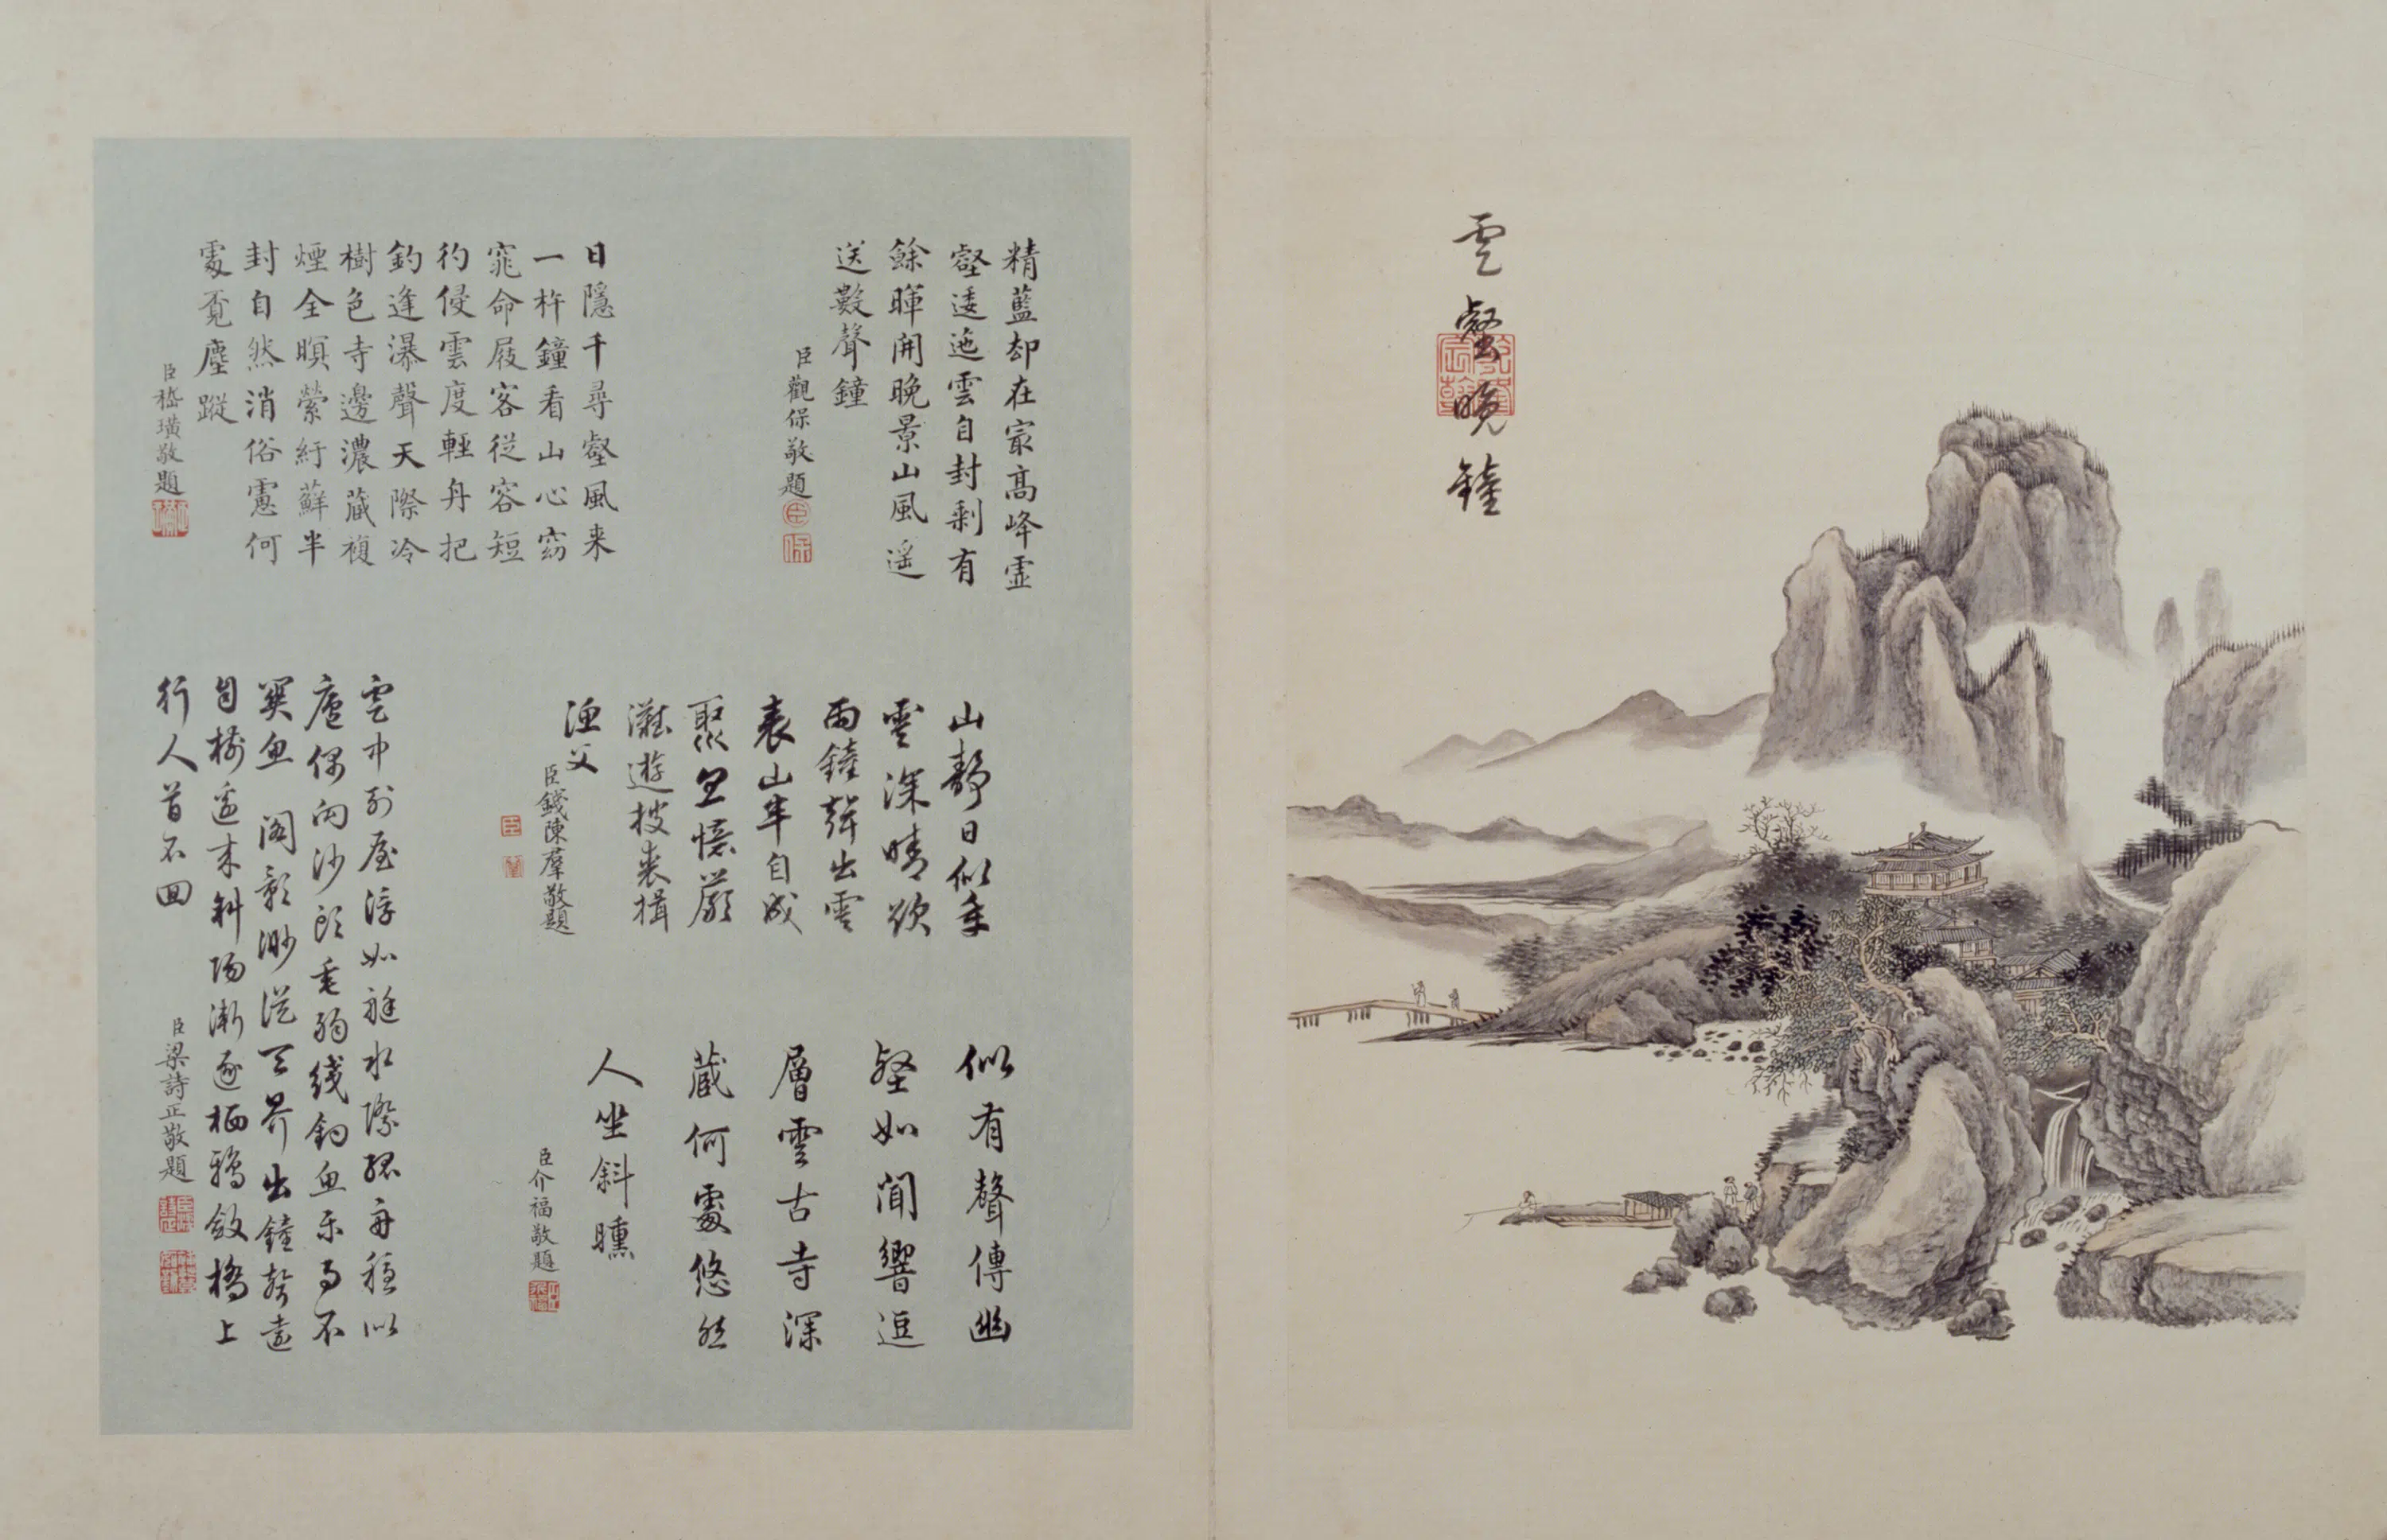 雲壑晚鐘
乾隆宸翰
精藍却在㝡高峰霊
壑逶迤雲自封剩有
餘暉開晚景山風遥
送數聲鐘
臣觀保敬題
臣
保
日隱千尋壑風来
一杵鐘看山心窈
窕命屐客從容短
彴侵雲度輕舟把
釣逢瀑聲天際冷
樹色寺邊濃蔵複
煙全暝縈紆蘚半
封自然消俗慮何
處覓塵蹤
臣嵇璜敬題
山靜日似年
雲深晴欲
雨鐘聲出雲
表山牟自成
聚憶嚴
灘遊披裘揖
漁父
臣錢陳羣敬題
臣
似有聲傳幽
壑如聞響逗
層雲古寺深
蔵何處悠然
人坐斜曛
臣介福敬題
雲中列屋浮如艇水際孤舟穏似
廬偶向沙頭垂弱线釣魚樂不
異魚 閣影渺從天界出鐘聲遠
自樹邊来斜陽漸逐栖鴉斂橋上
行人首不回
臣梁詩正敬題